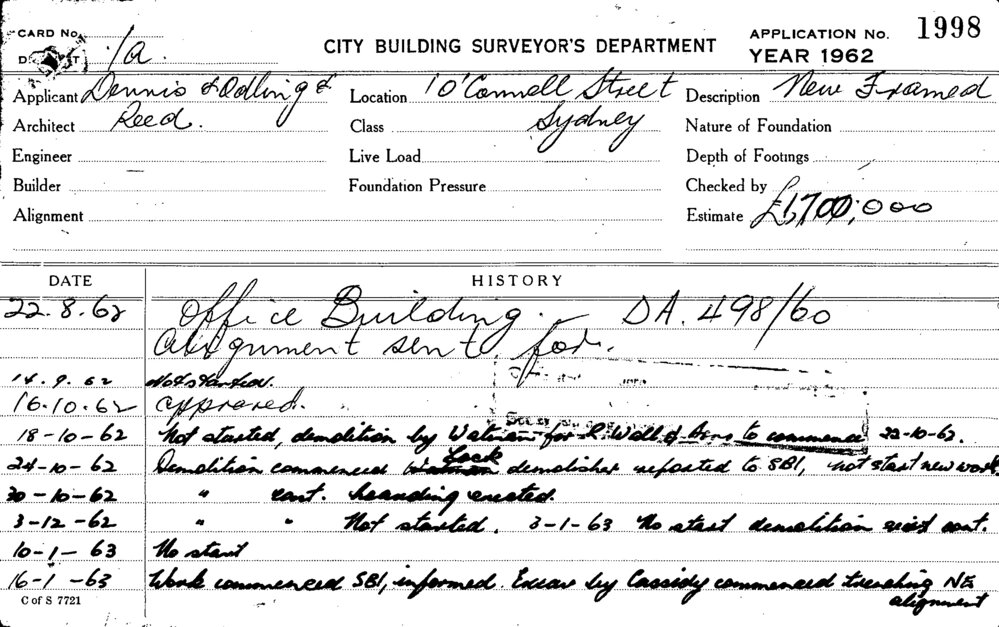 CARD No. 1a.
CITY BUILDING SURVEYOR'S DEPARTMENT
APPLICATION No. 1998
YEAR 1962
Applicant Dennis & Odling & Location 10'Connell Street Description New Framed
Architect Reed. Class Sydney Nature of Foundation
Engineer Live Load Depth of Footings
Builder Foundation Pressure Checked by
Alignment Estimate £1,700,000
DATE HISTORY
22.8.62 Office Building. DA. 498/60
Alignment sent for.
14.9.62 Not started.
16.10.62 Approved.
18-10-62 Not started, demolition by for R. Wall & to commence 22-10-62.
24-10-62 Demolition commenced Lock demolisher reported to SBI, not start new work.
30-10-62 " cont. hoarding erected.
3-12-62 " " Not started. 3-1-63 No start demolition cont.
10-1-63 No start
16-1-63 Work commenced SBI, informed. Excav by Cassidy commenced trenching NE
alignment
C of S 7721